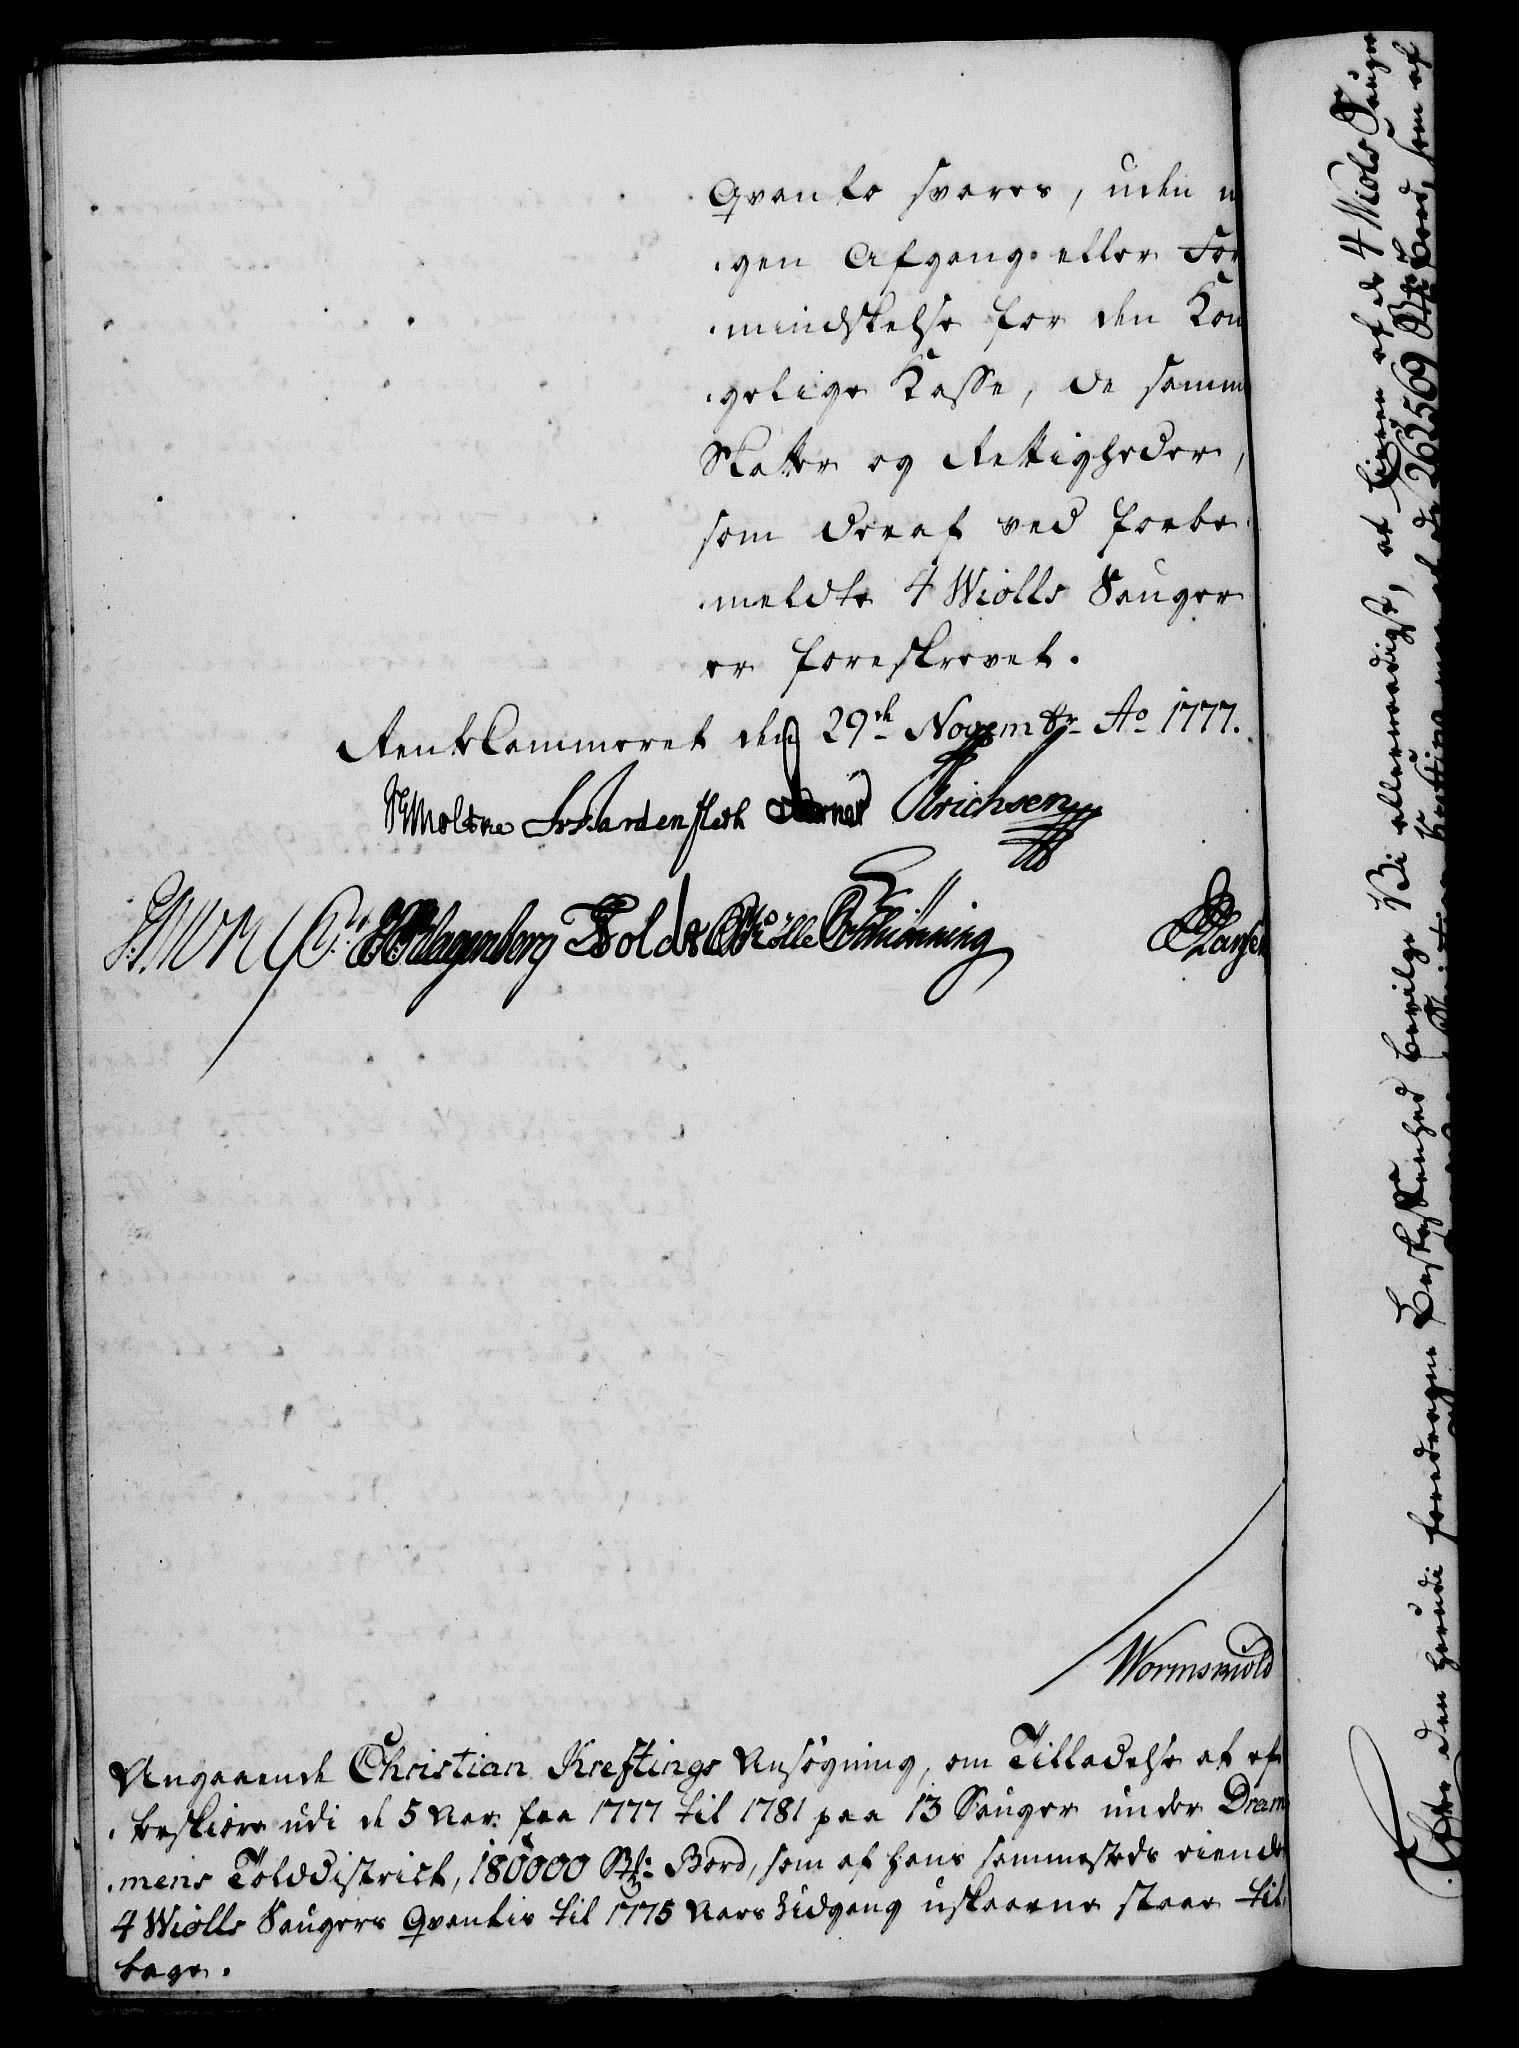 Qvanto svares, uden n
gen Afgang eller For
mindskelse for den Kon
gelige Kasse, de samm
Skatter og Rettigheder,
som deraf ved forbe
meldte 4 Wiolls Sauger
er foreskrevet.
RenteCammeret den 29de Novembr Ao 1777.
Moltke Hardenfleth Ericksen
Selmer Schiønning
Wormskiold
Angaaende Christian Kreftings Ansøgning, om Tilladelse at ef
terskiære udi de 5 Aar fra 1777 til 1781 paa 13 Sauger under Dram
mens Tolddistrict, 180000 St: Bord, som af hans sammesteds eiende
4 Wiolls Saugers Qvantis til 1775 Aars Udgang uskaarne staar til
bage.
Efter den herudi foredragne Beskaffenhed bevilge Vi allernaadigst, at Eieren af de 4 Wiols Sauger
263569 St: Bord, som af